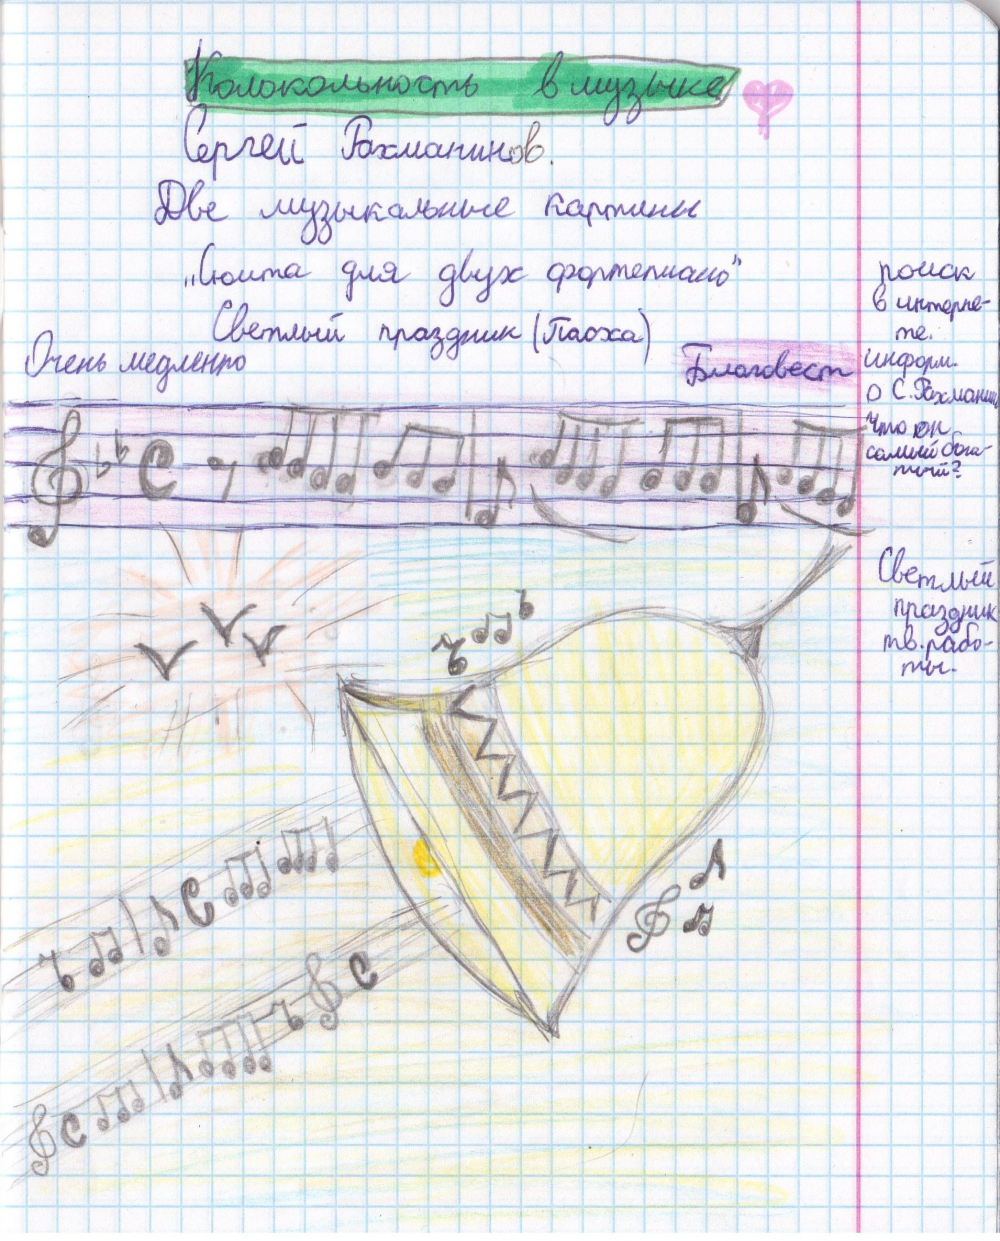 Колокольность в музыке
Сергей Рахманинов.
Две музыкальные картины
„Сюита для двух фортепиано"
Светлый праздник (Пасха)
Очень медленно
Благовест
поиск
в интерне-
те.
информ.
о С. Рахманин
что он
самый бога-
тый?
Светлый
праздник
тв. рабо-
ты.